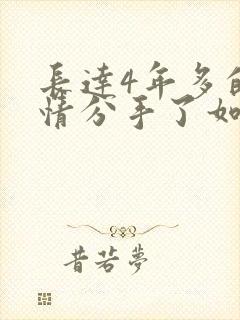 長達4年多的
情分手了如
昔若夢